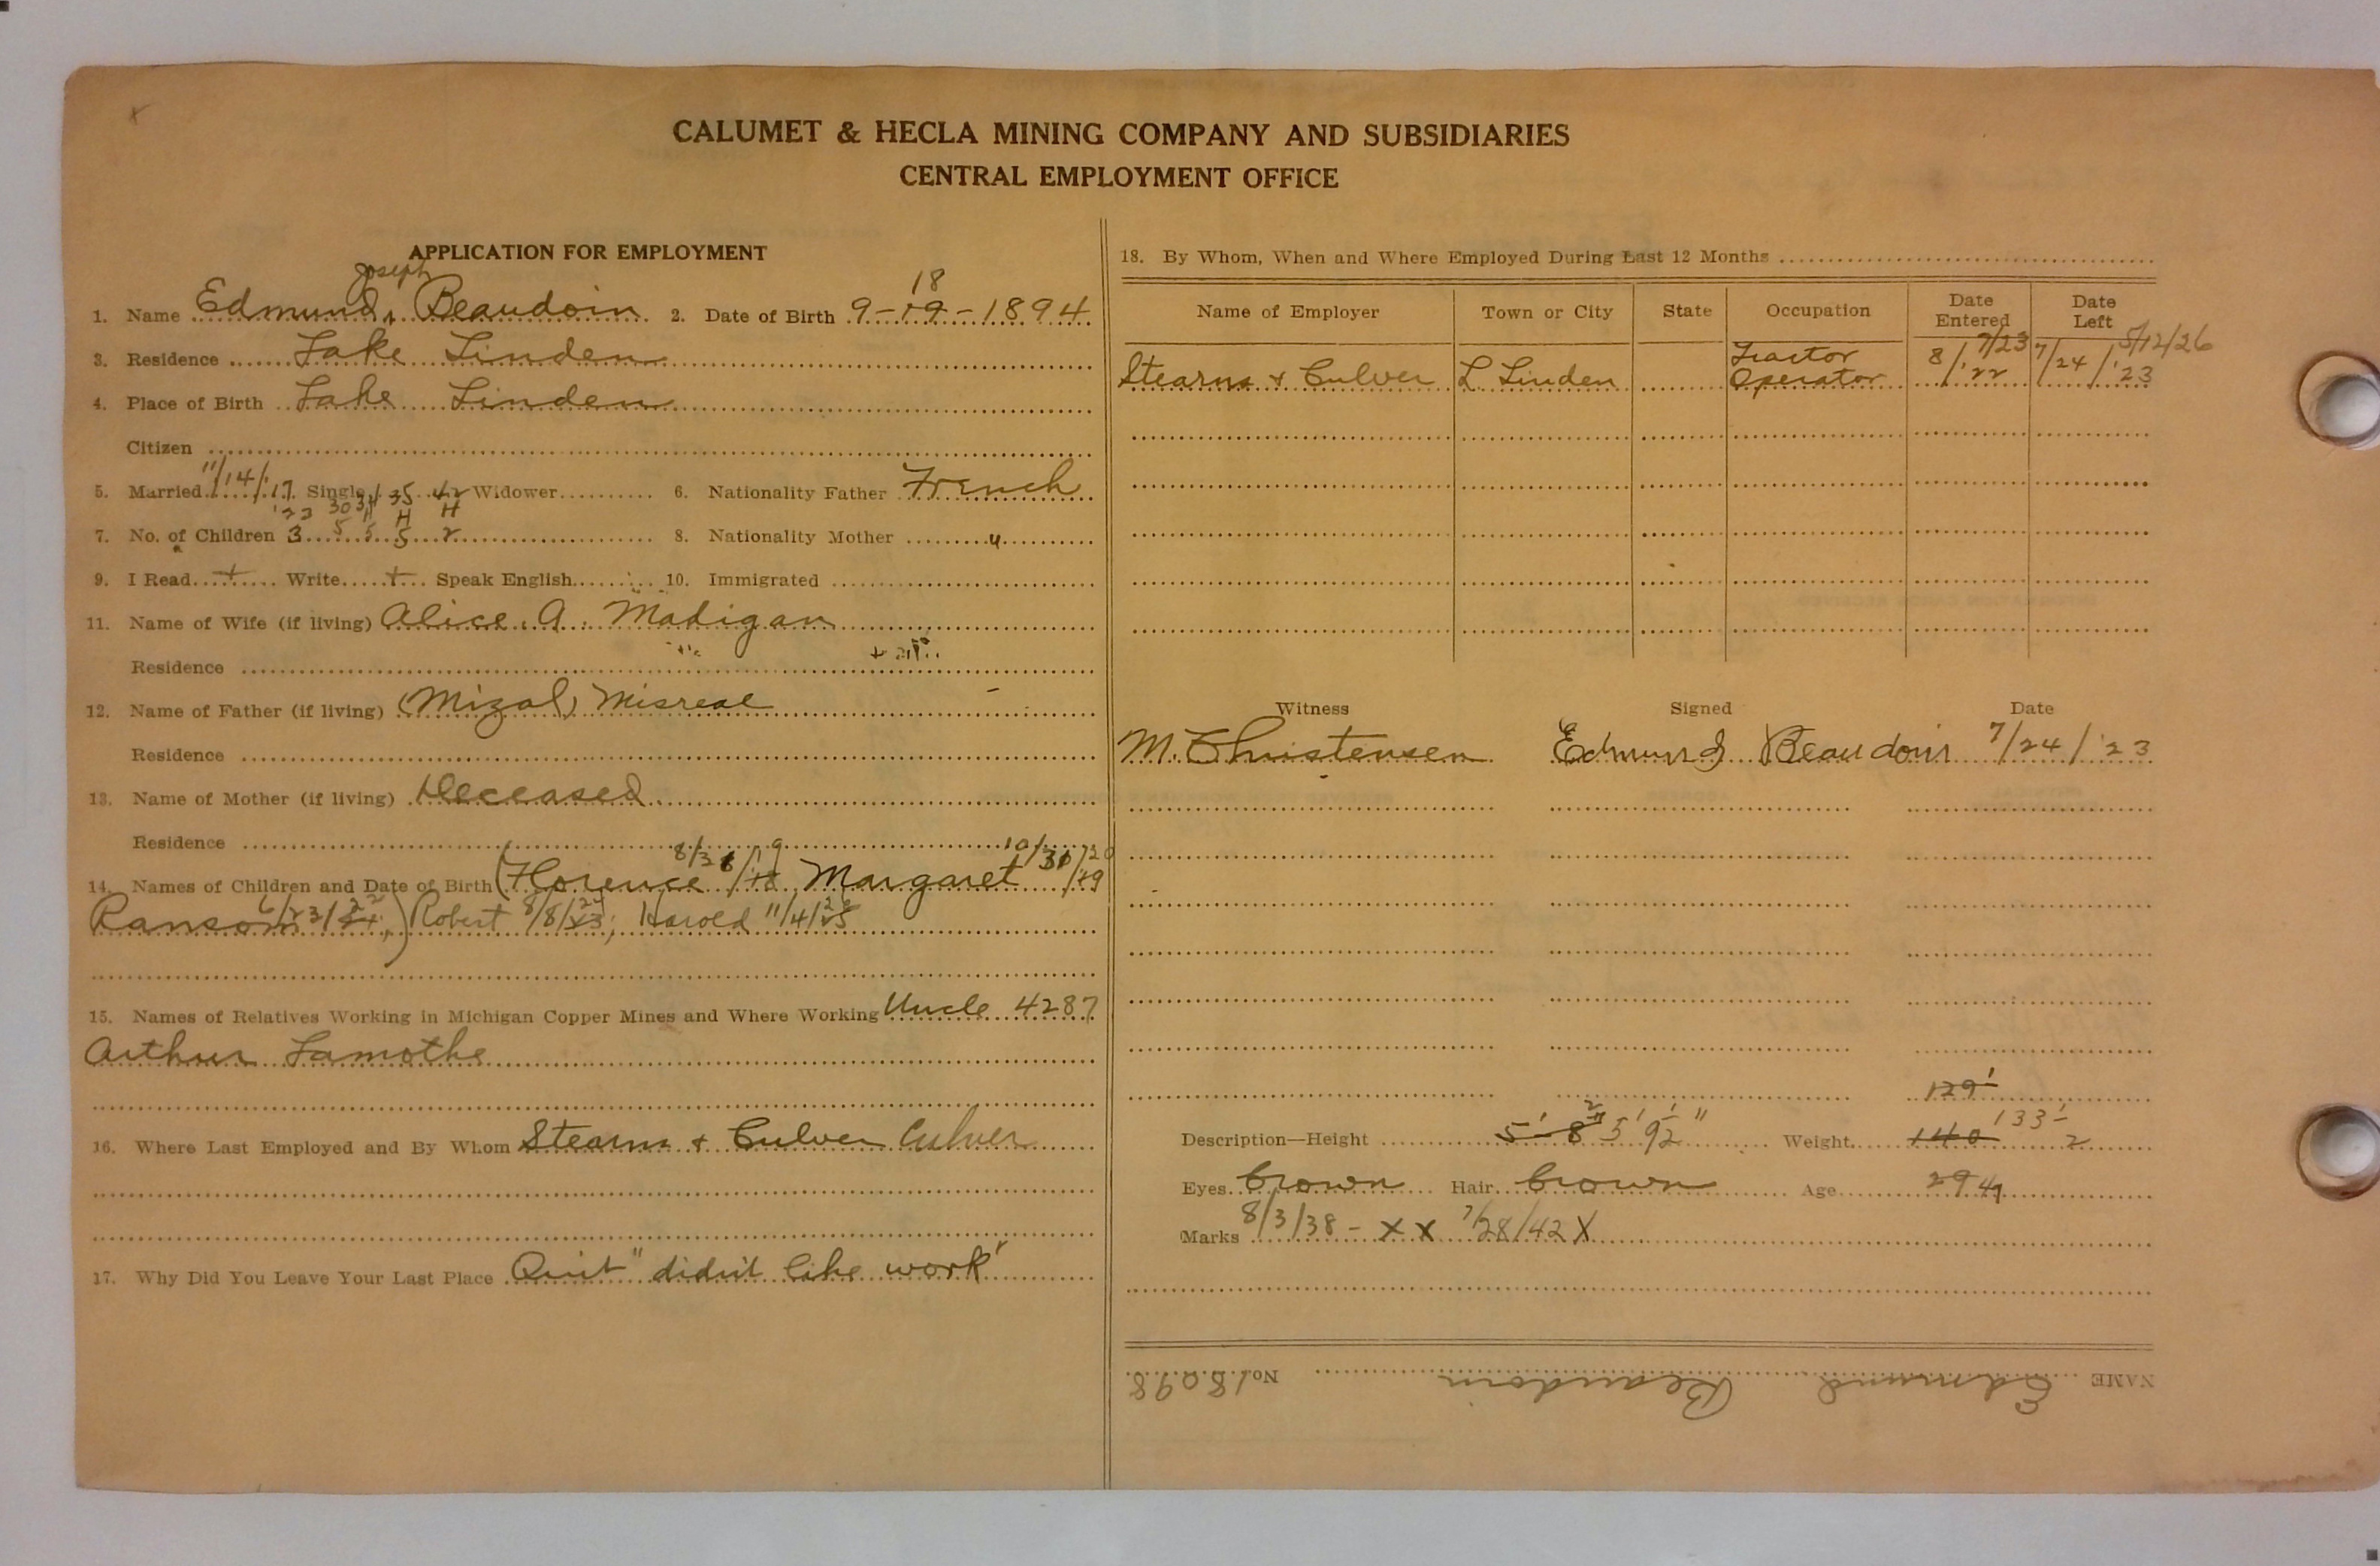 CALUMET & HECLA MINING COMPANY AND SUBSIDIARIES
CENTRAL EMPLOYMENT OFFICE
APPLICATION FOR EMPLOYMENT
Joseph 18
1. Name Edmund Beaudoin 2. Date of Birth 9-19-1894
3. Residence Lake Linden
4. Place of Birth Lake Linden
Citizen
5. Married 11/14/'17 Single Widower 6. Nationality Father French
'23 30 34 35 42
H H H
7. No. of Children 3 5 5 5 2 8. Nationality Mother "
9. I Read + Write + Speak English 10. Immigrated
11. Name of Wife (if living) Alice A. Madigan
Residence
12. Name of Father (if living) (Mizal) Misreal
Residence
13. Name of Mother (if living) Deceased
Residence
14. Names of Children and Date of Birth (Florence 8/31/18 19 Margaret 10/30/19 /20
Ransom 6/23/21 22) Robert 8/8/23 24; Harold 11/4/25 28
15. Names of Relatives Working in Michigan Copper Mines and Where Working Uncle 4287
Arthur Lamothe
16. Where Last Employed and By Whom Stearns & Culver Culver
17. Why Did You Leave Your Last Place Quit "didn't like work"
18. By Whom, When and Where Employed During Last 12 Months
Name of Employer Town or City State Occupation Date Entered Date Left
7/23 5/12/26
Stearns & Culver L Linden Tractor Operator 8/'22 7/24/'23
Witness Signed Date
M. Christensen Edmund Beaudoin 7/24/'23
129'
Description—Height 5'-8" 5' 9½" Weight 140 133½
Eyes brown Hair brown Age 29 47
Marks 8/3/38 - X X 7/28/42 X
NAME Edmund Beaudoin No. 18098